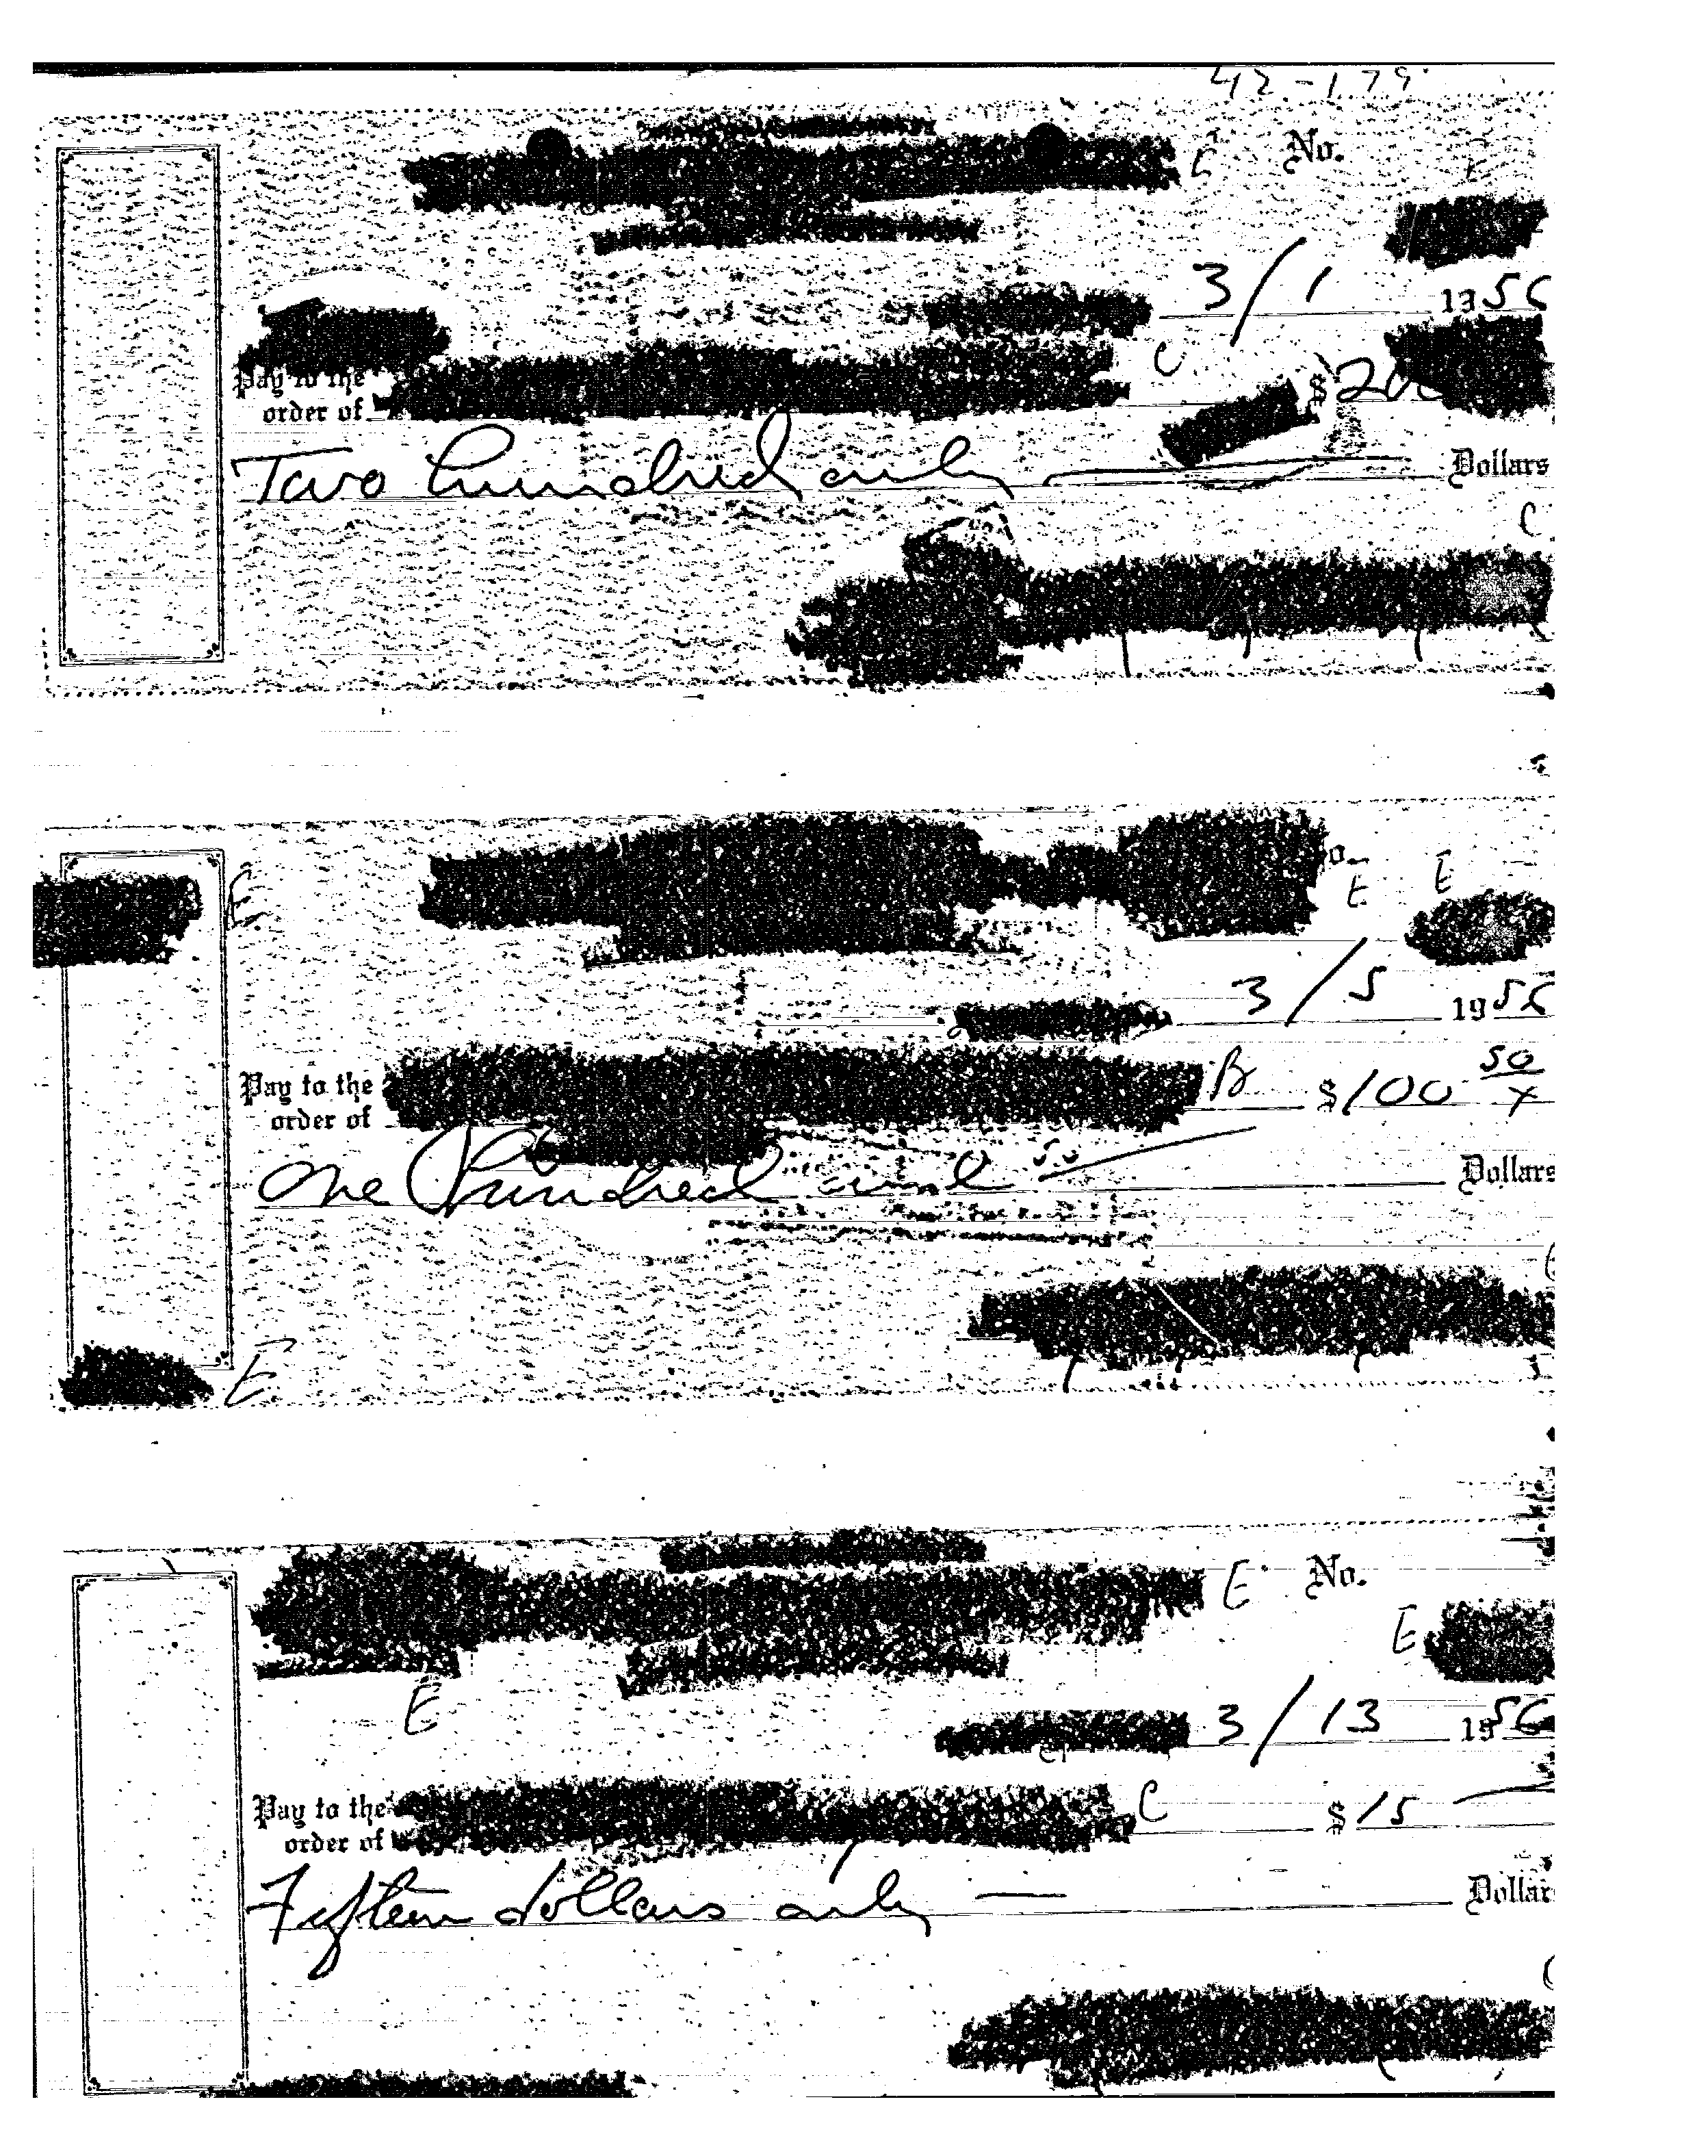 42-179
C No. E
3/1 1956
Pay to the
order of C $ 200
Two hundred only Dollars
C
E E E
3/5 1956
Pay to the
order of B $100 50/x
One Hundred and 50 Dollars
E
E No.
E
E
3/13 1956
Pay to the
order of C $15
Fifteen dollars only Dollars